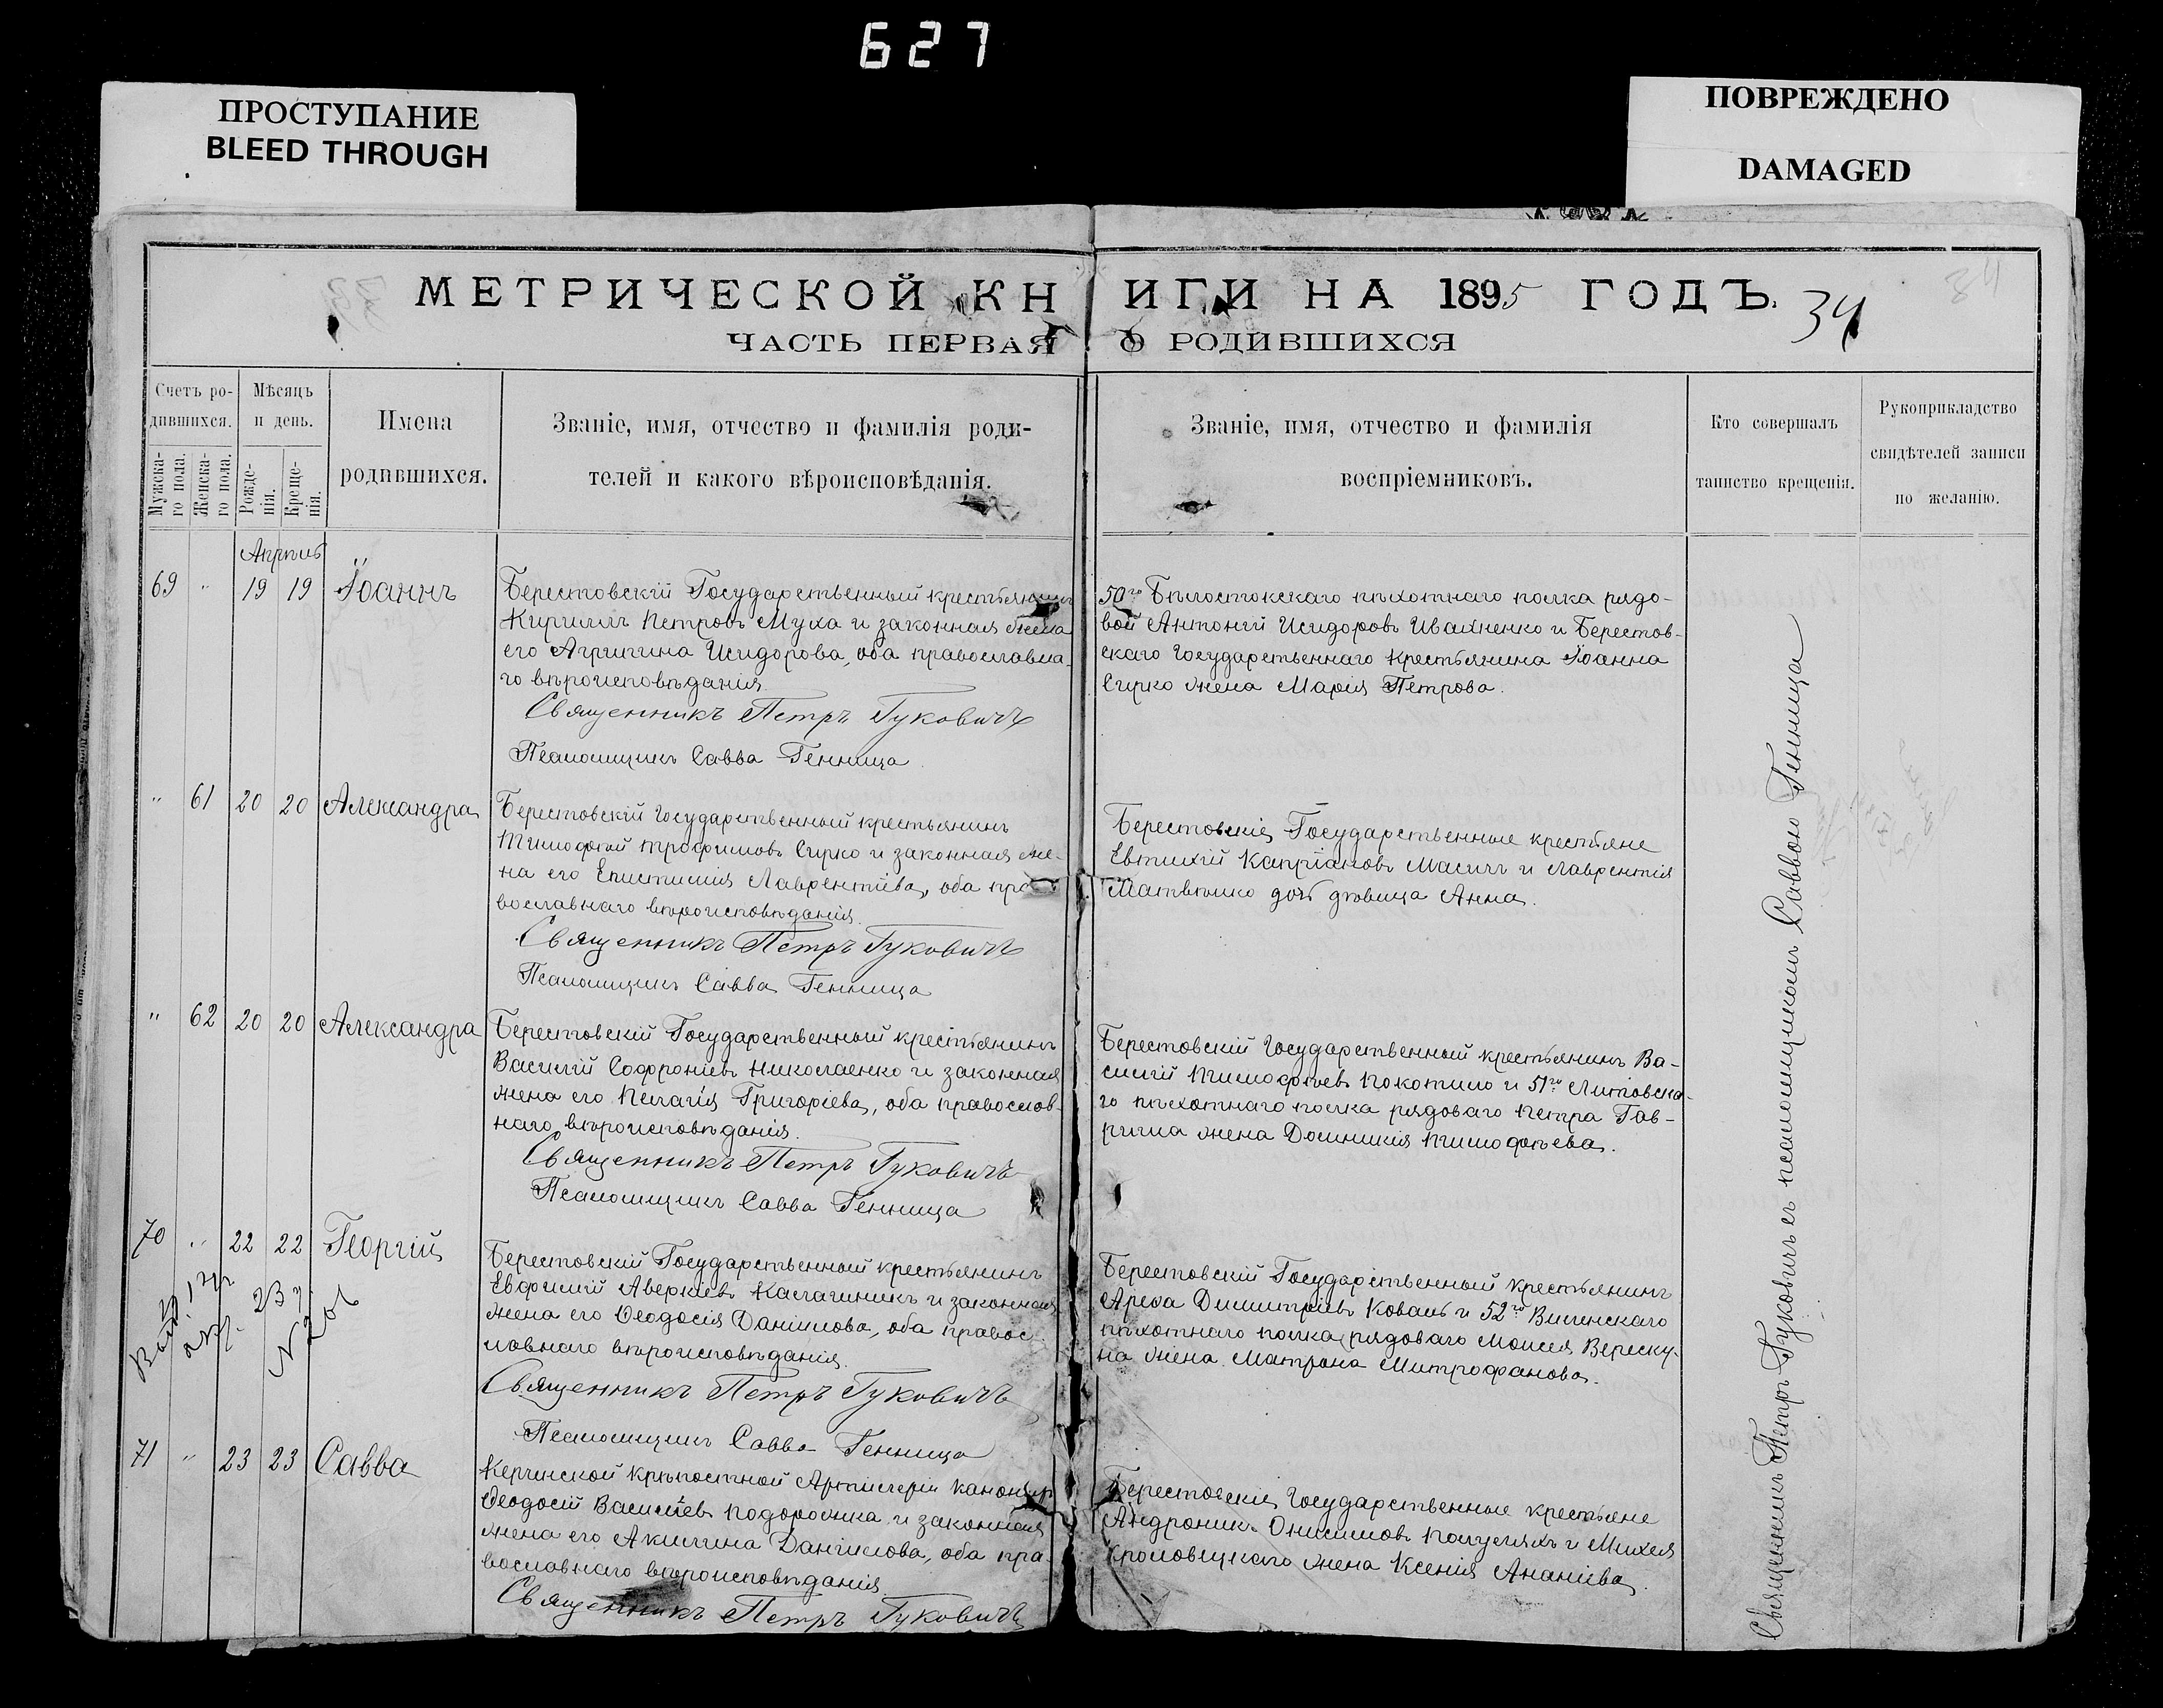 627
ПРОСТУПАНИЕ
BLEED THROUGH
ПОВРЕЖДЕНО
DAMAGED
МЕТРИЧЕСКОЙ КНИГИ НА 1895 ГОДЪ.
34
ЧАСТЬ ПЕРВАЯ О РОДИВШИХСЯ
Счетъ ро-
дившихся.
Мужска-
го пола.
Женска-
го пола.
Мѣсяцъ
и день.
Рожде-
нія.
Креще-
нія.
Имена
родившихся.
Званіе, имя, отчество и фамилія роди-
телей и какого вѣроисповѣданія.
Званіе, имя, отчество и фамилія
воспріемниковъ.
Кто совершалъ
таинство крещенія.
Рукоприкладство
свидѣтелей записи
по желанію.
Апрѣль
69 " 19 19 Іоаннъ
Берестовскій Государственный крестьянинъ
Кириллъ Петровъ Муха и законная жена
его Агрипина Исидорова, оба православна-
го вѣроисповѣданія.
Священникъ Петръ Гуковичъ
Псаломщикъ Савва Генница
50го Бѣлостокскаго пѣхотнаго полка рядо-
вой Антоній Исидоровъ Ивахненко и Берестов-
скаго Государственнаго крестьянина Іоанна
Сирко жена Марія Петрова.
" 61 20 20 Александра
Берестовскій Государственный крестьянинъ
Тимофей Трофимовъ Сирко и законная же-
на его Епистимія Лаврентіева, оба пра-
вославнаго вѣроисповѣданія.
Священникъ Петръ Гуковичъ
Псаломщикъ Савва Генница
Берестовскіе Государственные крестьяне
Евтихій Капріановъ Масичъ и Лаврентія
дочь дѣвица Анна.
" 62 20 20 Александра
Берестовскій Государственный крестьянинъ
Василій Софроніевъ Николаенко и законная
жена его Пелагія Григоріева, оба православ-
наго вѣроисповѣданія.
Священникъ Петръ Гуковичъ
Псаломщикъ Савва Генница
Берестовскій Государственный крестьянинъ Ва-
силій Тимофѣевъ Покотило и 51го Литовска-
го пѣхотнаго полка рядоваго Петра Гав-
рила жена Домникія Тимофѣева.
70 " 22 22 Георгій
N 201
Берестовскій Государственный крестьянинъ
Евфимій Аверкіевъ Калагиникъ и законная
жена его Ѳеодосія Даніилова, оба правос-
лавнаго вѣроисповѣданія.
Священникъ Петръ Гуковичъ
Псаломщикъ Савва Генница
Берестовскій Государственный крестьянинъ
Арефа Димитріевъ Коваль и 52го Виленскаго
пѣхотнаго полка рядоваго Моисея Вереску-
на жена Матрона Митрофанова.
71 " 23 23 Савва
Керчинской крѣпостной Артиллеріи канониръ
Ѳеодосій Василіевъ Подорожка и законная
жена его Акилина Даніилова, оба пра-
вославнаго вѣроисповѣданія.
Священникъ Петръ Гуковичъ
Берестовскіе Государственные крестьяне
Андроникъ Онисимовъ Полуляхъ и Михея
Кроловецкаго жена Ксенія Ананіева.
Священникъ Петръ Гуковичъ съ псаломщикомъ Саввою Генница